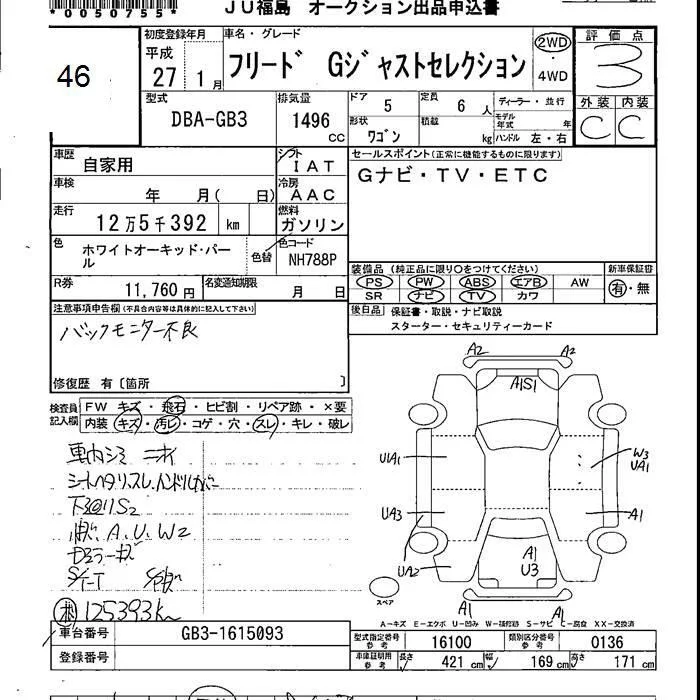 *0050755*
JU福島 オークション出品申込書
46
初度登録年月
平成
27 1月
車名・グレード
フリード Gジャストセレクション
2WD
・
4WD
評価点
3
外装 内装
C C
型式
DBA-GB3
排気量
1496
CC
ドア 5
形状 ワゴン
定員 6 人
積載 kg
ディーラー・並行
モデル年式 年
ハンドル 左・右
車歴 自家用
シフト IAT
車検 年 月( 日)
冷房 AAC
走行 12万5千392 km
燃料 ガソリン
色 ホワイトオーキッド・パール
色替
色コード NH788P
R券 11,760円
名変通知期限 月 日
セールスポイント(正常に機能するものに限ります)
Gナビ・TV・ETC
装備品 (純正品に限り○をつけてください)
PS PW ABS エアB AW
SR ナビ TV カワ
新車保証書
有・無
後日品 保証書・取説・ナビ取説
スターター・セキュリティーカード
注意事項申告欄(不具合内容等は具体的に記入して下さい)
バックモニター不良
修復歴 有〔箇所 〕
検査員記入欄
FW キズ・飛石・ヒビ割・リペア跡・×要
内装 キズ・汚レ・コゲ・穴・スレ・キレ・破レ
車内シミ ニオイ
シートヘタリ、スレ、ハンドルカバー
下廻りS2
A、U、W2
125393km
A2 A2
A1S1
U1A1
W3
UA1
UA3
A1
UA2
A1
U3
A1 A1
スペア
A-キズ E-エクボ U-凹み W-補修跡 S-サビ C-腐食 XX-交換済
車台番号 GB3-1615093
登録番号
型式指定番号 参考 16100
類別区分番号 参考 0136
車庫証明用 参考 長さ 421 cm 幅 169 cm 高さ 171 cm